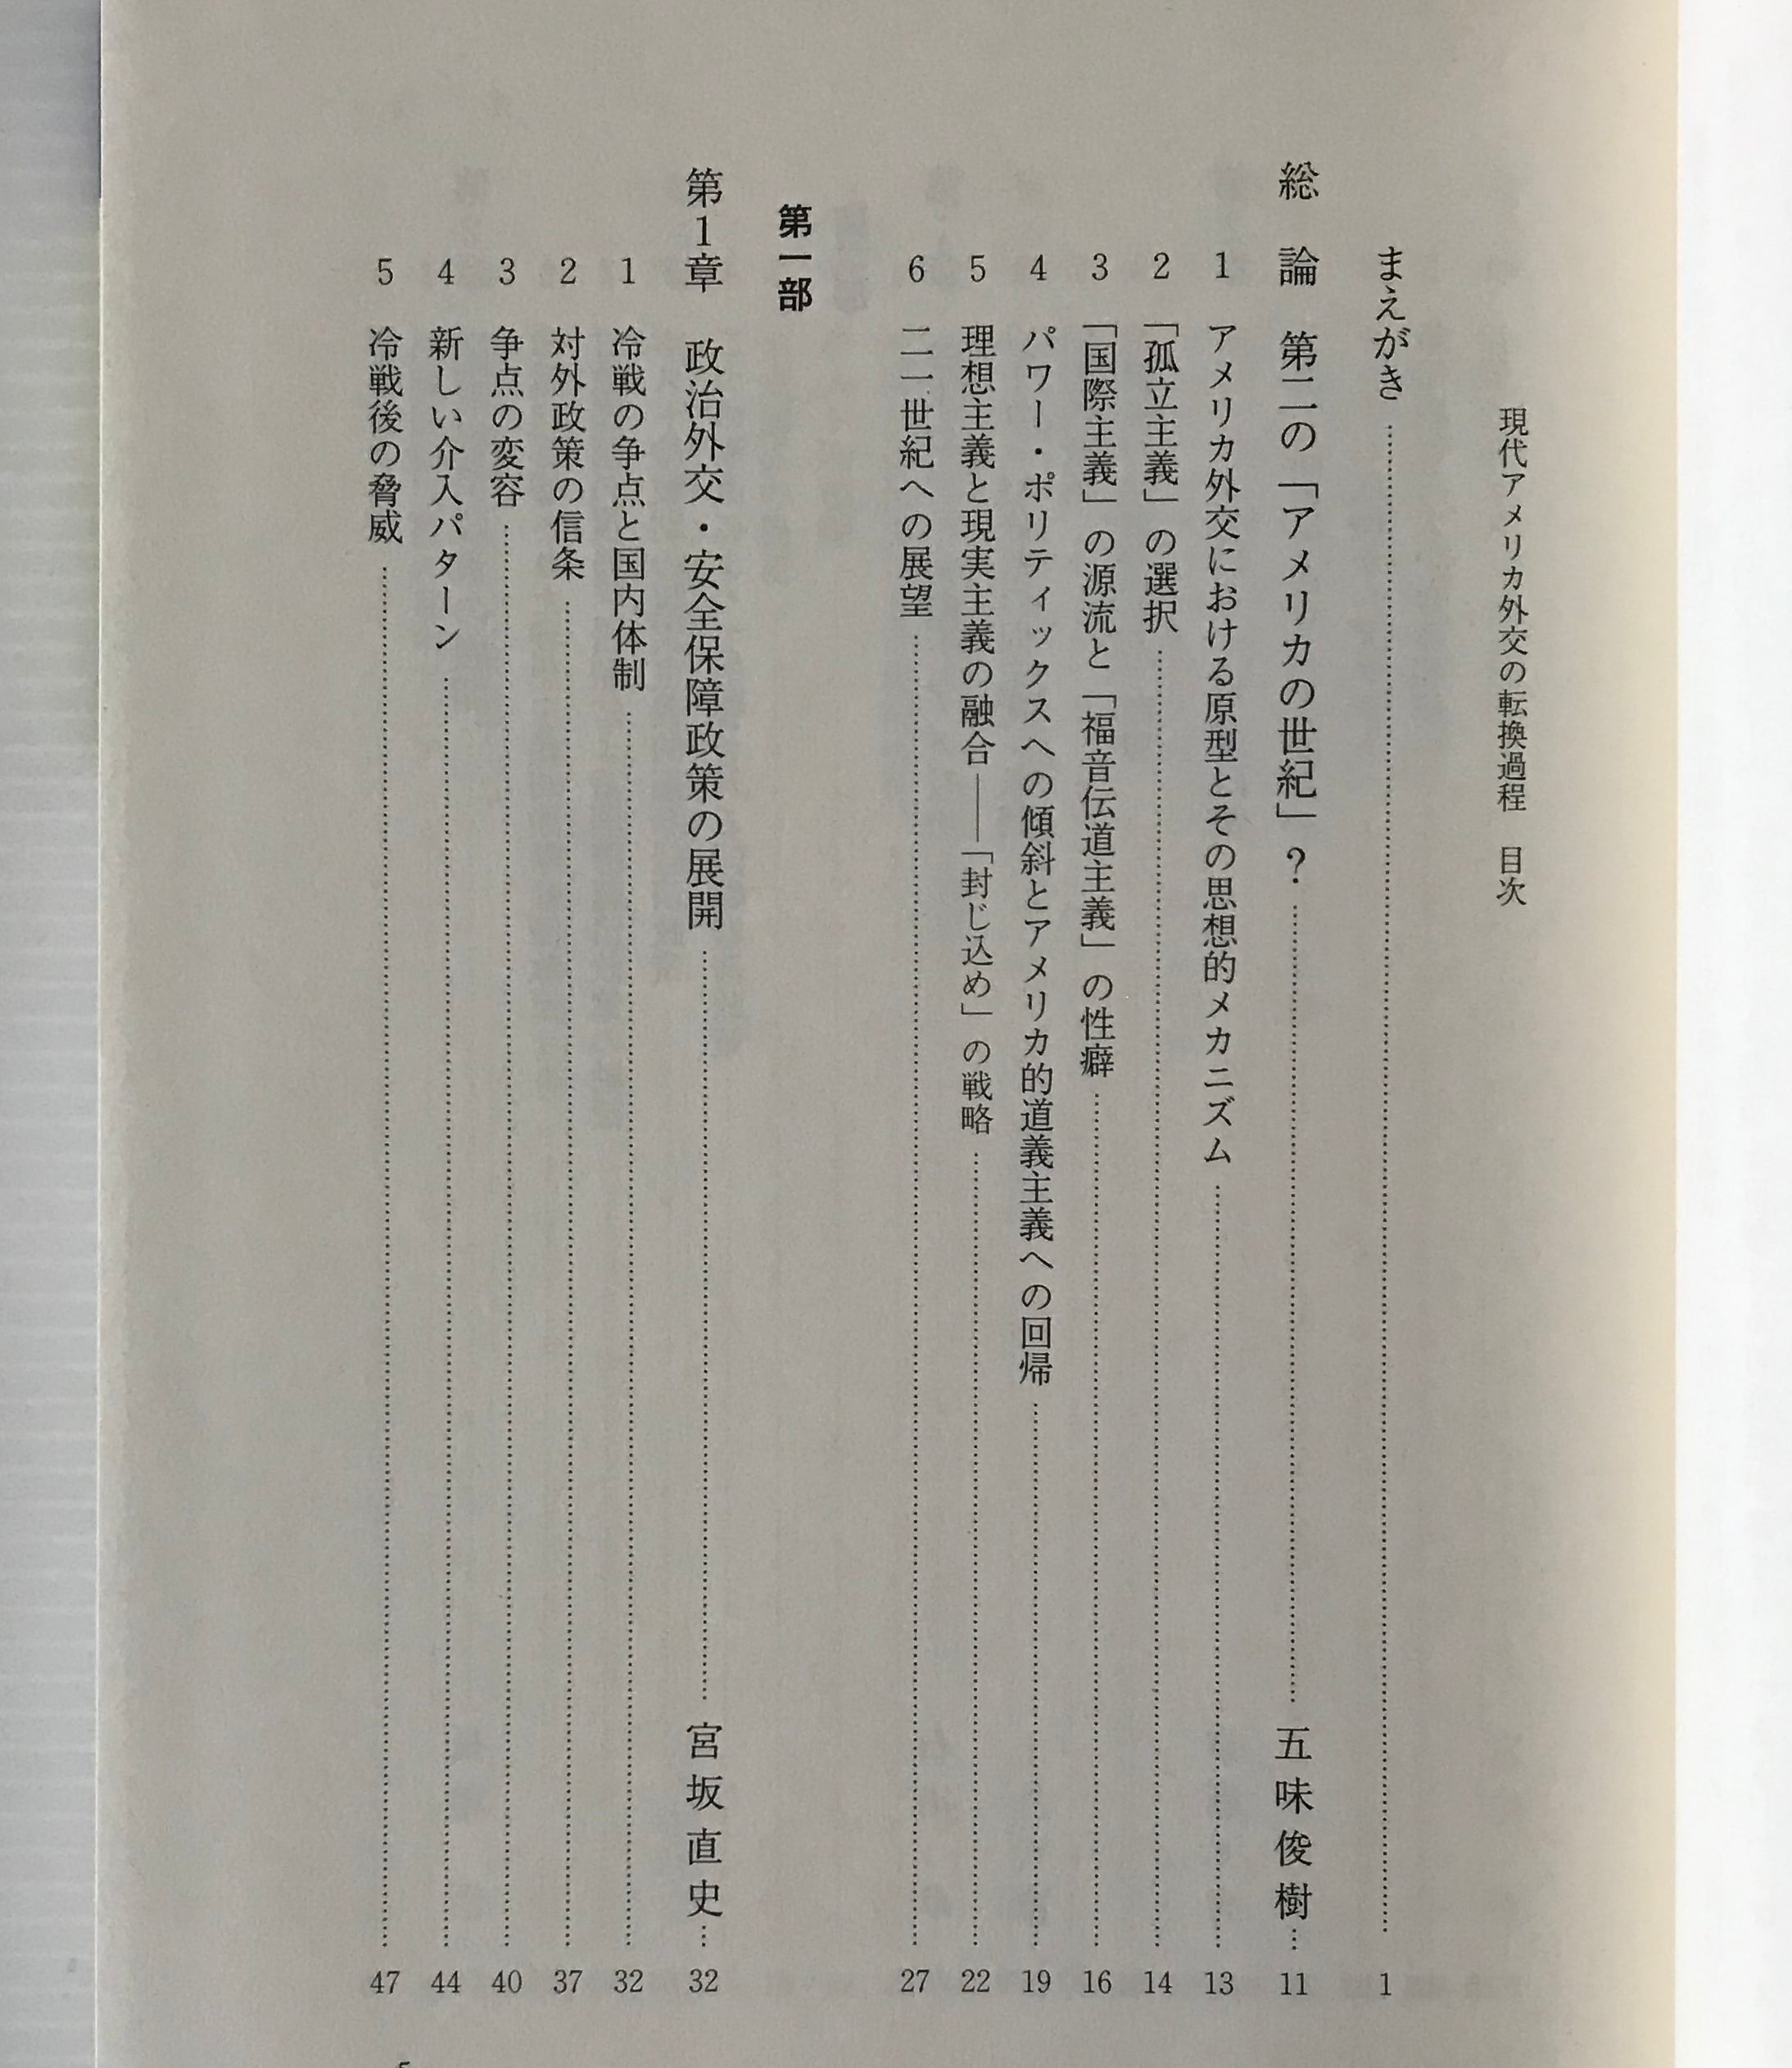 現代アメリカ外交の転換過程　目次
まえがき……1
総　論　第二の「アメリカの世紀」？……五味俊樹…11
1　アメリカ外交における原型とその思想的メカニズム……13
2　「孤立主義」の選択……14
3　「国際主義」の源流と「福音伝道主義」の性癖……16
4　パワー・ポリティックスへの傾斜とアメリカ的道義主義への回帰……19
5　理想主義と現実主義の融合――「封じ込め」の戦略……22
6　二一世紀への展望……27
第一部
第1章　政治外交・安全保障政策の展開……宮坂直史…32
1　冷戦の争点と国内体制……32
2　対外政策の信条……37
3　争点の変容……40
4　新しい介入パターン……44
5　冷戦後の脅威……47